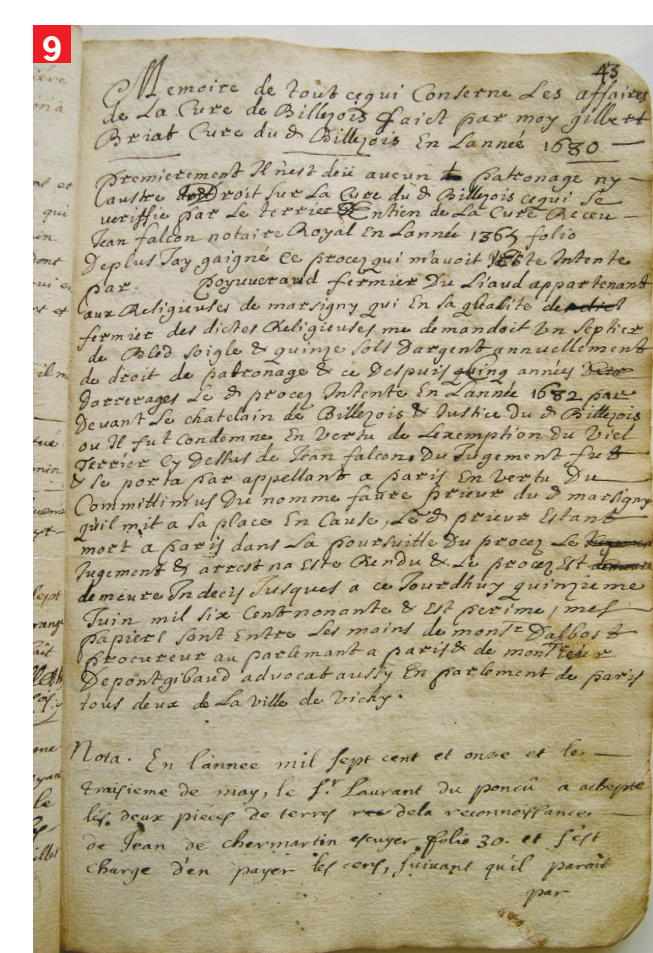 9
43
Memoire de tout cequi Conserne Les affaires
de La Cure de Billezois faict par moy gilbert
Briat Cure du d Billezois En Lannée 1680
premierement Il n'est deü aucun patronage ny
austre Droit sur La Cure du d Billezois cequi se
veriffie par Le terrier Entien de La Cure Receu
Jean falcon notaire Royal En Lannée 1365 folio
Deplus Jay gaigné Ce procez qui m'avoit Este Intente
par. poyuveraud fermier Du Liaud appartenant
aux Religieuses de marsigny qui En sa qualité de
fermier des dictes Religieuses me demandoit Un septier
de Bled soigle & quinze sols Dargent annuellement
de droit de patronage & ce Despuis quinq années
Darrerages Le d procez Intente En Lannée 1682 par
Devant Le chatelain de Billezois & Justice Du d Billezois
ou Il fut Condemne En vertu de Lexemption du Viel
Terrier Cy Dessus de Jean falcon, Du Jugement fut
& se porta par appellant a paris En vertu Du
Committimus Du nomme faure prieur du d marsigny
quil mit a sa place En Cause, Le d prieur Estant
mort a paris dans La poursuitte Du procez Le
Jugement & arrest na Este Rendu & Le procez Est
demeure Indecis Jusques a ce Jourdhuy quinzieme
Juin mil six Cent nonante & Est perime, mes
papiers sont Entre Les mains de monsr Dalbost
procureur au parlemant a paris & de monsieur
Depontgibaud advocat aussy En parlement de paris
tous deux de La ville de vichy.
Nota. En l'année mil sept cent et onze et le
traisieme de may, le sr. Laurant du poncû a achepté
les deux pieces de terres dela reconnoissance
de Jean de chermartin escuyer folio 30. et s'est
charge d'en payer les cens, suivant qu'il paroit
par